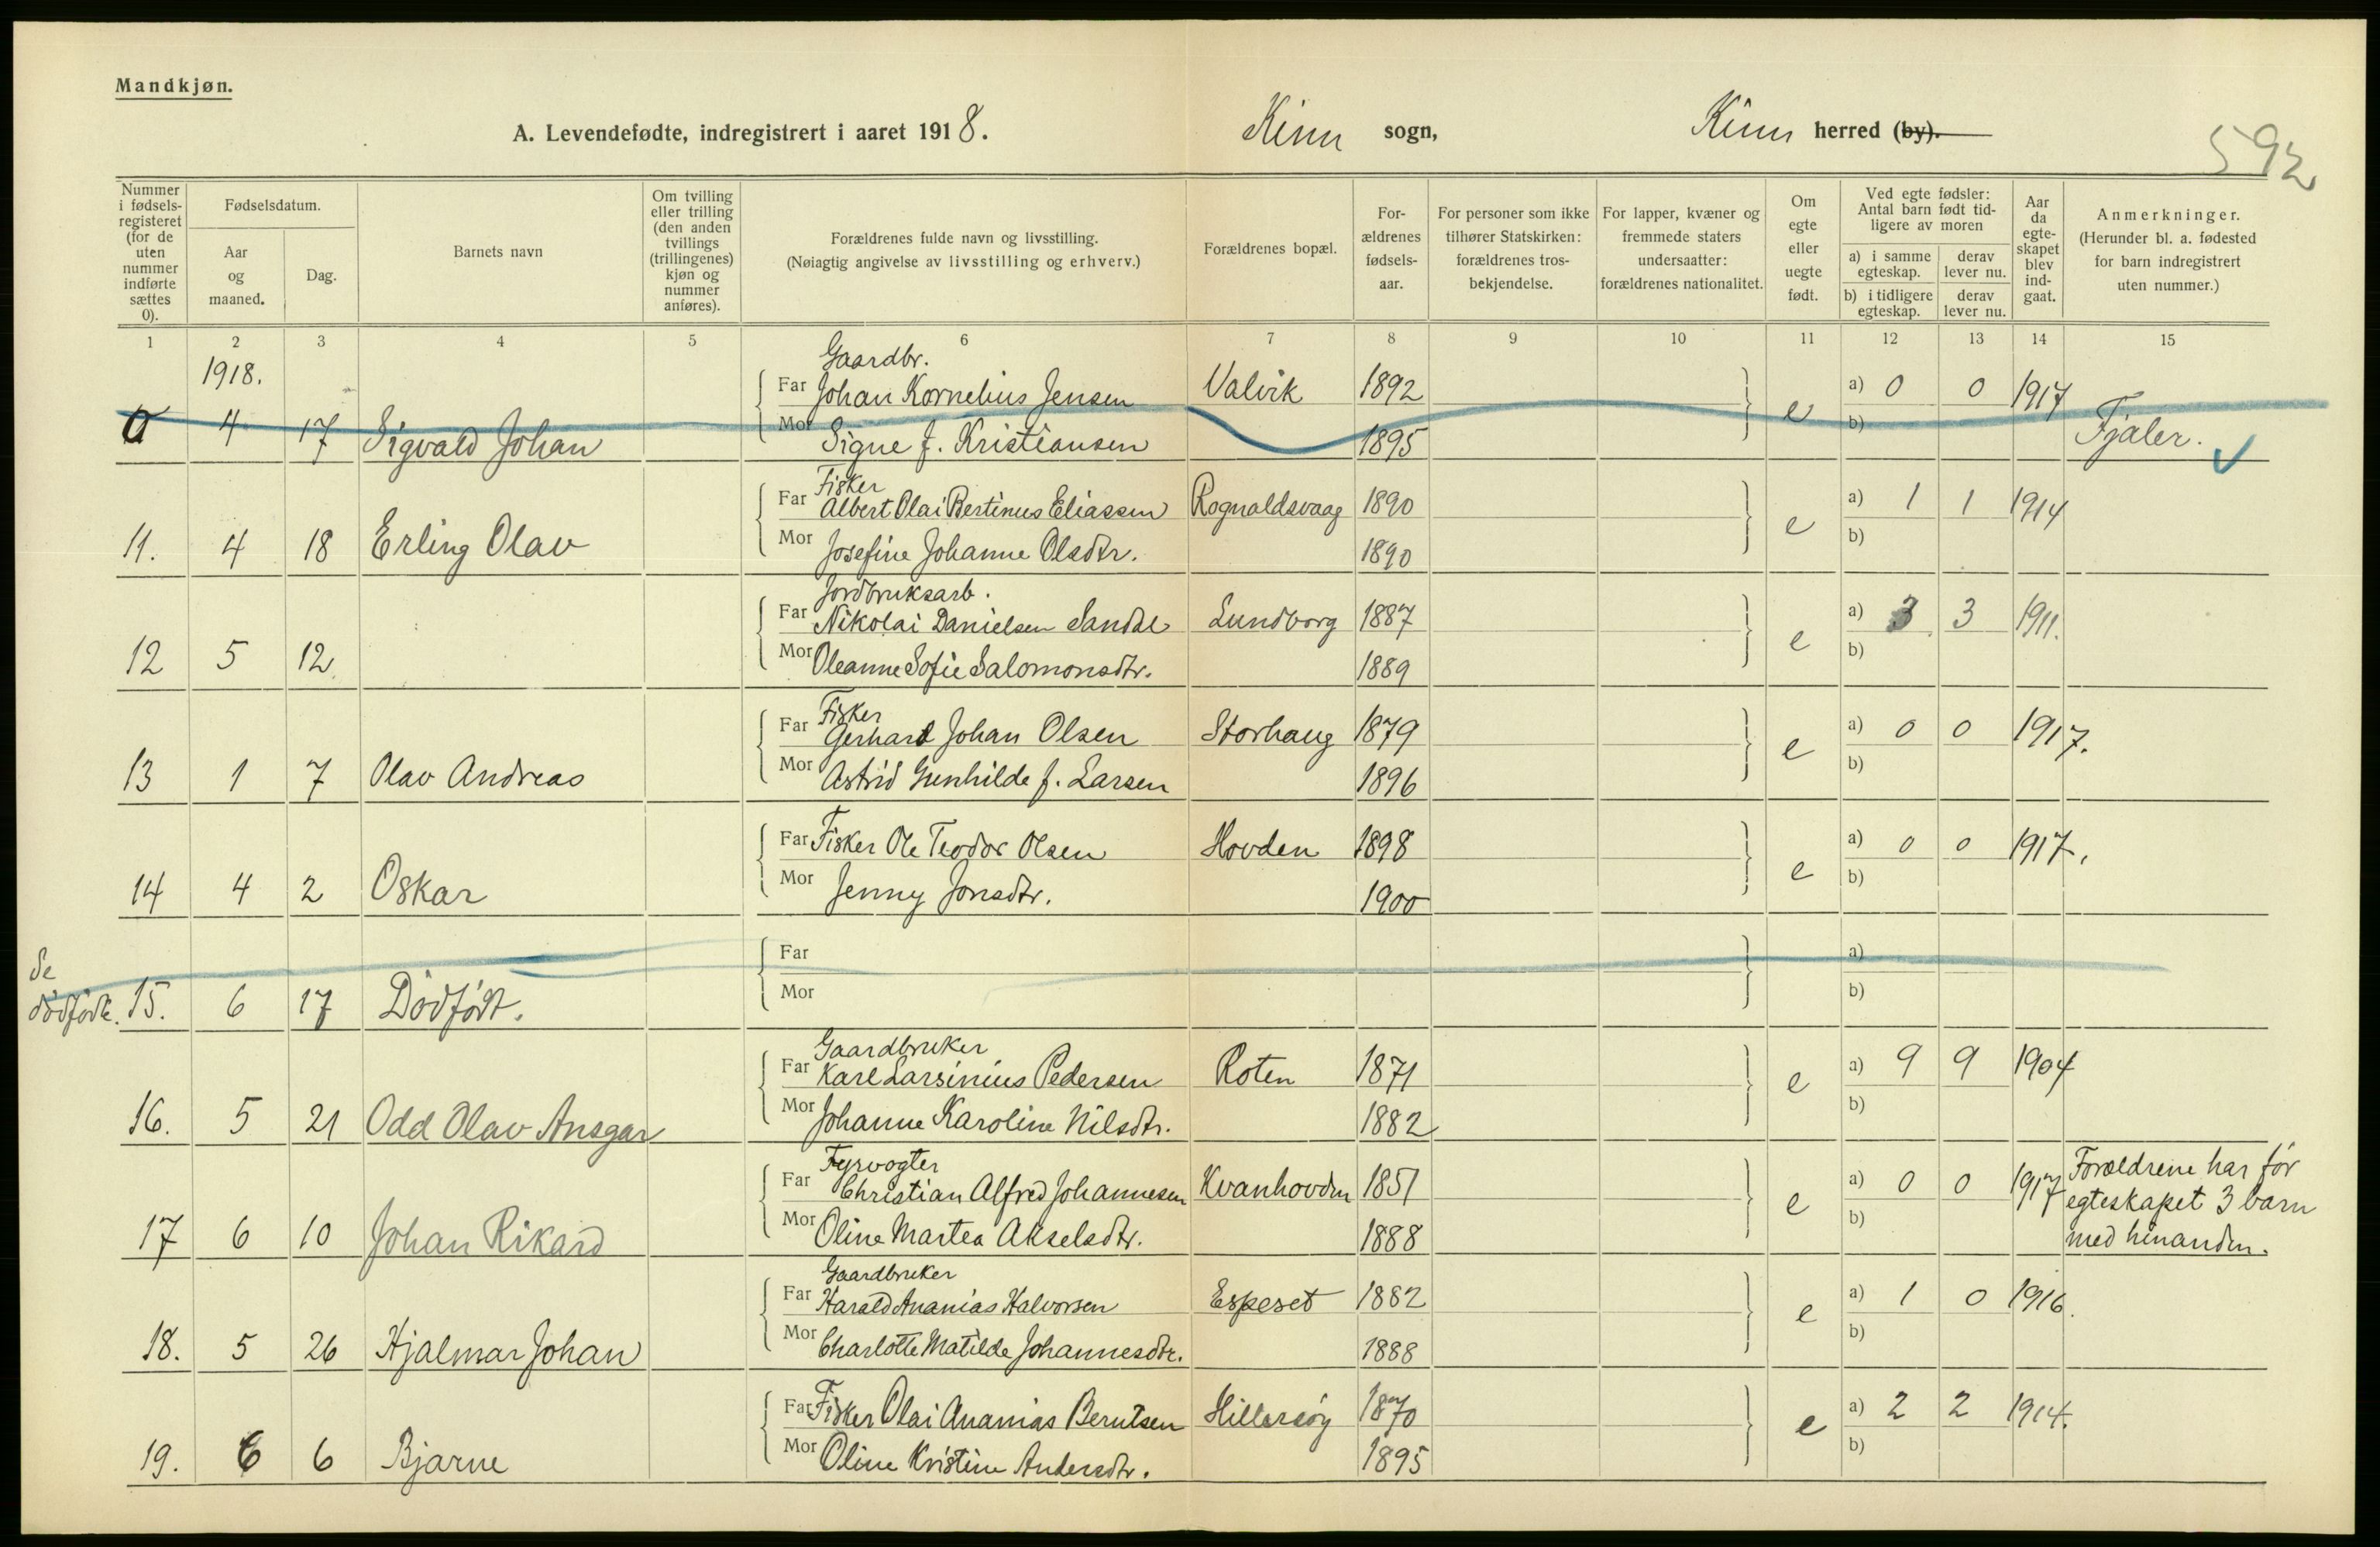 Mandkjøn.
A. Levendefødte, indregistrert i aaret 1918. Kinn sogn, Kinn herred (by).
592
Nummer i fødsels-registeret (for de uten nummer indførte sættes 0).
Fødselsdatum.
Aar og maaned.
Dag.
Barnets navn
Om tvilling eller trilling (den anden tvillings (trillingenes) kjøn og nummer anføres).
Forældrenes fulde navn og livsstilling.
(Nøiagtig angivelse av livsstilling og erhverv.)
Forældrenes bopæl.
For-ældrenes fødsels-aar.
For personer som ikke tilhører Statskirken: forældrenes tros-bekjendelse.
For lapper, kvæner og fremmede staters undersaatter: forældrenes nationalitet.
Om egte eller uegte født.
Ved egte fødsler: Antal barn født tid-ligere av moren
a) i samme egteskap.
derav lever nu.
b) i tidligere egteskap.
derav lever nu.
Aar da egte-skapet blev ind-gaat.
Anmerkninger.
(Herunder bl. a. fødested for barn indregistrert uten nummer.)
1 2 3 4 5 6 7 8 9 10 11 12 13 14 15
1918.
Gaardbr.
Far Johan Kornelius Jensen Valvik 1892 a) 0 0 1917
0 4 17 Sigvald Johan Mor Signe f. Kristiansen 1895 e b) Fjaler.
Fisker
Far Albert Olai Bertinus Eliassen Rognaldsvaag 1890 a) 1 1 1914
11. 4 18 Erling Olav Mor Josefine Johanne Olsdtr. 1890 e b)
Jordbruksarb.
Far Nikolai Danielsen Sandal Lundborg 1887 a) 3 3 1911.
12 5 12. Mor Oleanne Sofie Salomonsdtr. 1889 e b)
Fisker
Far Gerhard Johan Olsen Storhaug 1879 a) 0 0 1917.
13 1 7 Olav Andreas Mor Astrid Gunhilde f. Larsen 1896 e b)
Far Fisker Ole Teodor Olsen Hovden 1898 a) 0 0 1917.
14 4 2 Oskar Mor Jenny Jonsdtr. 1900 e b)
Far a)
Se dødfødte. 15. 6 17 Dödfödt. Mor b)
Gaardbruker
Far Karl Larsinius Pedersen Roten 1871 a) 9 9 1904
16. 5 21 Odd Olav Ansgar Mor Johanne Karoline Nilsdtr. 1882 e b)
Fyrvogter
Far Christian Alfred Johannesen Kvanhovden 1851 a) 0 0 1917 Forældrene har för
egteskapet 3 barn
17 6 10 Johan Rikard Mor Oline Martea Akselsdtr. 1888 e b) med hinanden.
Gaardbruker
Far Harald Ananias Halvorsen Espeset 1882 a) 1 0 1916.
18. 5 26 Hjalmar Johan Mor Charlotte Matilde Johannesdtr. 1888 e b)
Far Fisker Olai Ananias Berntsen Hillersöy 1870 a) 2 2 1914.
19. 6 6 Bjarne Mor Oline Kristine Andersdtr. 1895 e b)